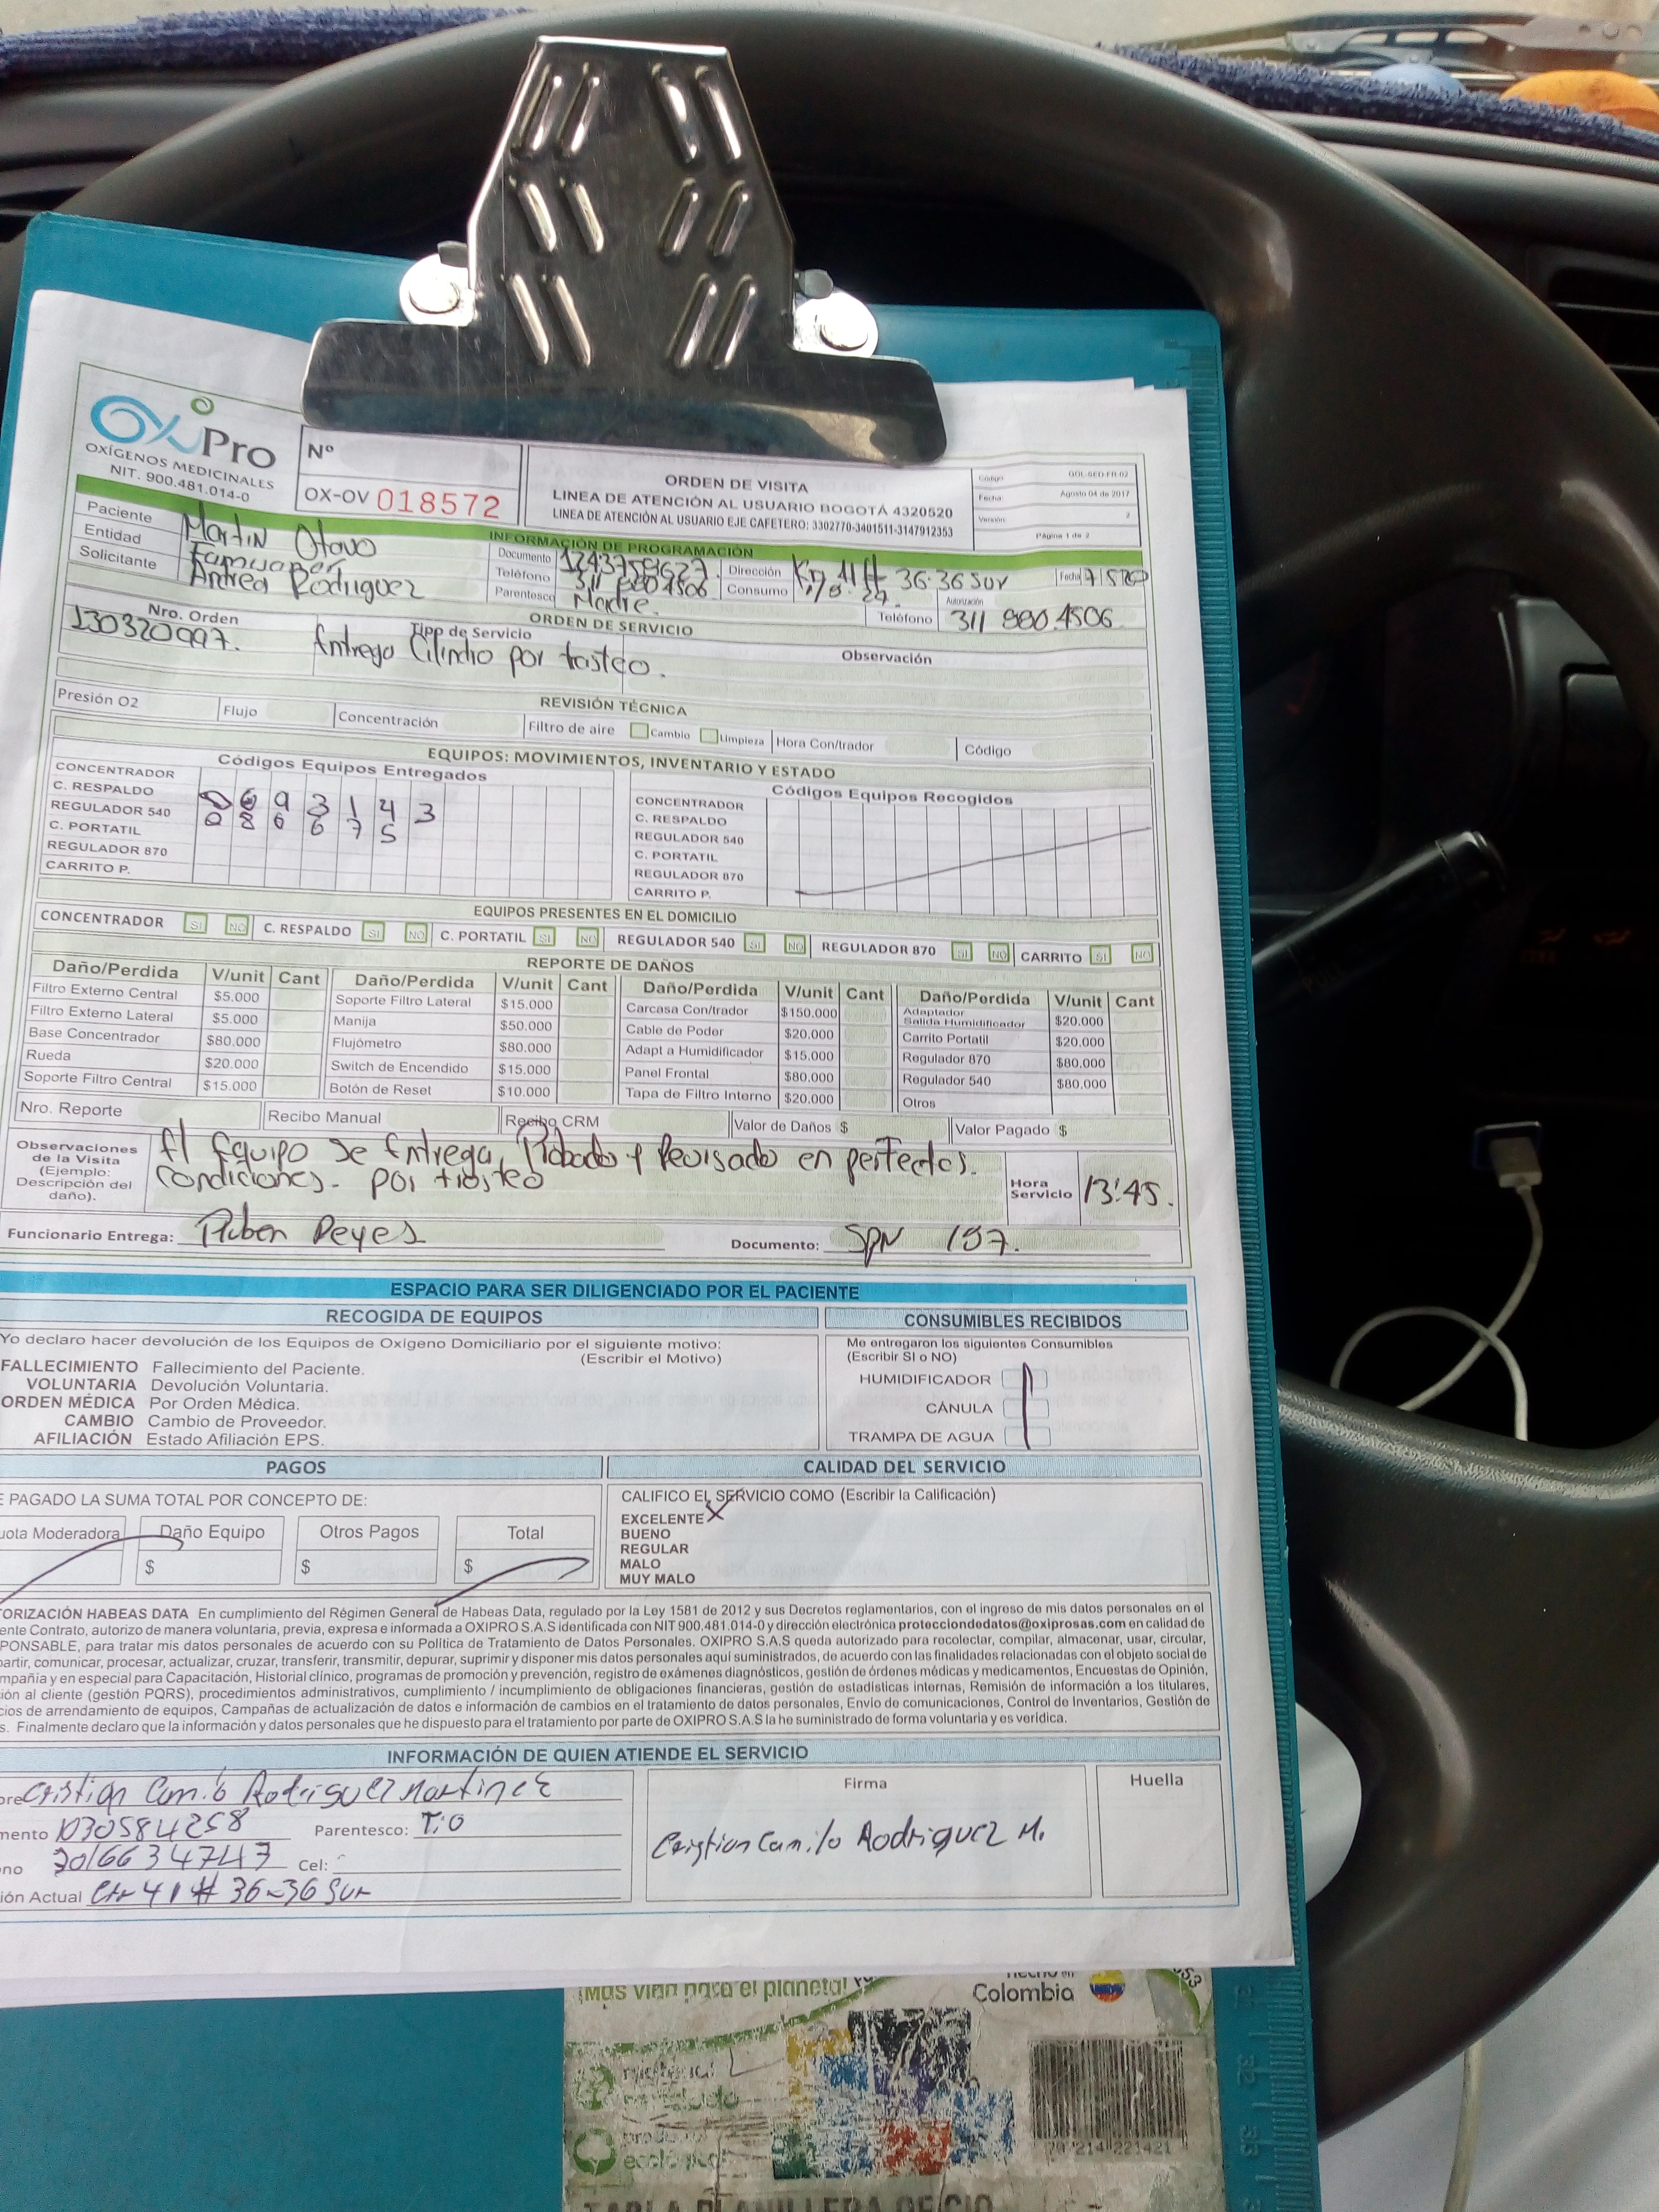 OxiPro
OXÍGENOS MEDICINALES
NIT. 900.481.014-0
Nº
OX-OV 018572
ORDEN DE VISITA
LINEA DE ATENCIÓN AL USUARIO BOGOTÁ 4320520
LINEA DE ATENCIÓN AL USUARIO EJE CAFETERO: 3302770-3401511-3147912353
Código: GOL-SED-FR-02
Fecha: Agosto 04 de 2017
Versión: 2
Página 1 de 2
INFORMACIÓN DE PROGRAMACIÓN
Paciente Martin Otavo Documento Dirección 41 # 36-36 Sur Fecha
Entidad Famisanar Teléfono 311 880 4506 Consumo
Solicitante Andrea Rodriguez Parentesco Madre. Autorización Teléfono 311 880 4506
ORDEN DE SERVICIO
Nro. Orden Tipo de Servicio Observación
130320997. Entrega Cilindro por trasteo.
REVISIÓN TÉCNICA
Presión O2 Flujo Concentración Filtro de aire Cambio Limpieza Hora Con/trador Código
EQUIPOS: MOVIMIENTOS, INVENTARIO Y ESTADO
Códigos Equipos Entregados Códigos Equipos Recogidos
CONCENTRADOR CONCENTRADOR
C. RESPALDO 0693143 C. RESPALDO
REGULADOR 540 086675 REGULADOR 540
C. PORTATIL C. PORTATIL
REGULADOR 870 REGULADOR 870
CARRITO P. CARRITO P.
EQUIPOS PRESENTES EN EL DOMICILIO
CONCENTRADOR SI NO C. RESPALDO SI NO C. PORTATIL SI NO REGULADOR 540 SI NO REGULADOR 870 SI NO CARRITO SI NO
REPORTE DE DAÑOS
Daño/Perdida V/unit Cant Daño/Perdida V/unit Cant Daño/Perdida V/unit Cant Daño/Perdida V/unit Cant
Filtro Externo Central $5.000 Soporte Filtro Lateral $15.000 Carcasa Con/trador $150.000 Adaptador Salida Humidificador $20.000
Filtro Externo Lateral $5.000 Manija $50.000 Cable de Poder $20.000 Carrito Portatil $20.000
Base Concentrador $80.000 Flujómetro $80.000 Adapt a Humidificador $15.000 Regulador 870 $80.000
Rueda $20.000 Switch de Encendido $15.000 Panel Frontal $80.000 Regulador 540 $80.000
Soporte Filtro Central $15.000 Botón de Reset $10.000 Tapa de Filtro Interno $20.000 Otros
Nro. Reporte Recibo Manual Recibo CRM Valor de Daños $ Valor Pagado $
Observaciones de la Visita (Ejemplo: Descripción del daño).
El Equipo Se Entrega, Probado y Revisado en perfectas.
Condiciones. por trasteo
Hora Servicio 13:45.
Funcionario Entrega: Ruben Reyes Documento: SPN 157.
ESPACIO PARA SER DILIGENCIADO POR EL PACIENTE
RECOGIDA DE EQUIPOS CONSUMIBLES RECIBIDOS
Yo declaro hacer devolución de los Equipos de Oxígeno Domiciliario por el siguiente motivo:
(Escribir el Motivo)
FALLECIMIENTO Fallecimiento del Paciente.
VOLUNTARIA Devolución Voluntaria.
ORDEN MÉDICA Por Orden Médica.
CAMBIO Cambio de Proveedor.
AFILIACIÓN Estado Afiliación EPS.
Me entregaron los siguientes Consumibles
(Escribir SI o NO)
HUMIDIFICADOR
CÁNULA
TRAMPA DE AGUA
PAGOS CALIDAD DEL SERVICIO
E PAGADO LA SUMA TOTAL POR CONCEPTO DE:
uota Moderadora Daño Equipo Otros Pagos Total
$ $ $
CALIFICO EL SERVICIO COMO (Escribir la Calificación)
EXCELENTE X
BUENO
REGULAR
MALO
MUY MALO
TORIZACIÓN HABEAS DATA En cumplimiento del Régimen General de Habeas Data, regulado por la Ley 1581 de 2012 y sus Decretos reglamentarios, con el ingreso de mis datos personales en el
ente Contrato, autorizo de manera voluntaria, previa, expresa e informada a OXIPRO S.A.S identificada con NIT 900.481.014-0 y dirección electrónica protecciondedatos@oxiprosas.com en calidad de
PONSABLE, para tratar mis datos personales de acuerdo con su Política de Tratamiento de Datos Personales. OXIPRO S.A.S queda autorizado para recolectar, compilar, almacenar, usar, circular,
partir, comunicar, procesar, actualizar, cruzar, transferir, transmitir, depurar, suprimir y disponer mis datos personales aquí suministrados, de acuerdo con las finalidades relacionadas con el objeto social de
mpañia y en especial para Capacitación, Historial clínico, programas de promoción y prevención, registro de exámenes diagnósticos, gestión de órdenes médicas y medicamentos, Encuestas de Opinión,
ión al cliente (gestión PQRS), procedimientos administrativos, cumplimiento / incumplimiento de obligaciones financieras, gestión de estadísticas internas, Remisión de información a los titulares,
cios de arrendamiento de equipos, Campañas de actualización de datos e información de cambios en el tratamiento de datos personales, Envio de comunicaciones, Control de Inventarios, Gestión de
s. Finalmente declaro que la información y datos personales que he dispuesto para el tratamiento por parte de OXIPRO S.A.S la he suministrado de forma voluntaria y es verídica.
INFORMACIÓN DE QUIEN ATIENDE EL SERVICIO
bre Cristian Camilo Rodriguez Martinez
mento 1030584258 Parentesco: Tio
no Cel:
ión Actual Cra 41 # 36-36 Sur
Firma
Cristian Camilo Rodriguez M.
Huella
¡Más vida para el planeta!
Hecho en
Colombia
material
producto
ecológico
TABLA PLANILLERA OFICIO